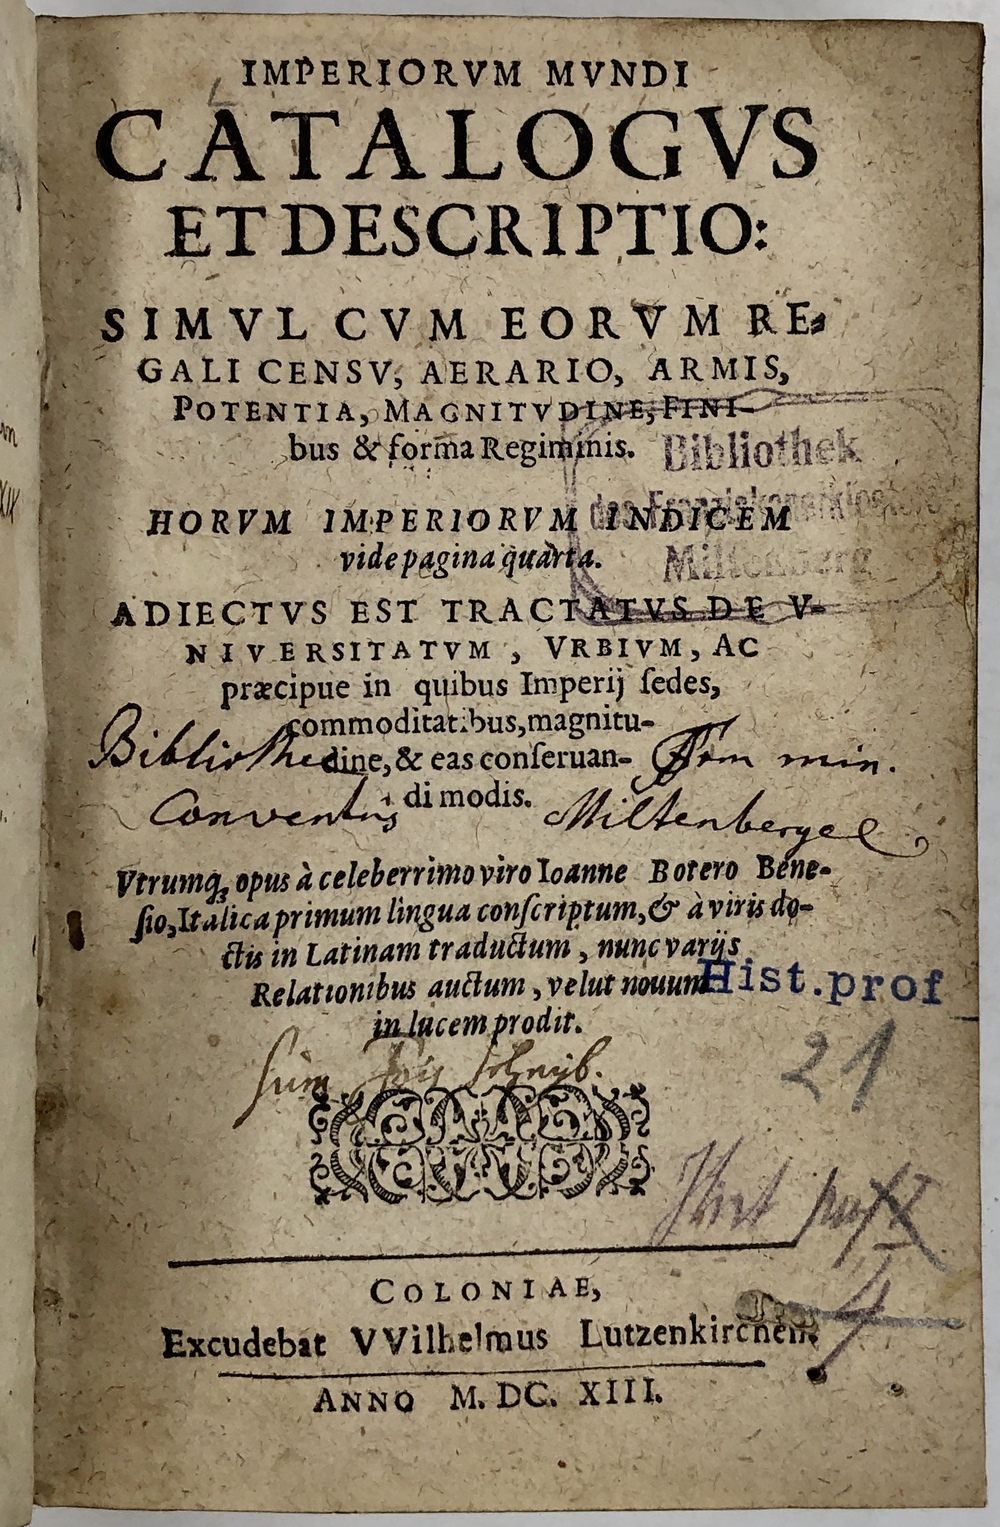 IMPERIORVM MVNDI
CATALOGVS
ET DESCRIPTIO:
SIMVL CVM EORVM RE-
GALI CENSV, AERARIO, ARMIS,
POTENTIA, MAGNITVDINE, FINI-
bus & forma Regiminis.
Bibliothek
des Franziskanerklosters
Miltenberg
HORVM IMPERIORVM INDICEM
vide pagina quarta.
ADIECTVS EST TRACTATVS DE V-
NIVERSITATVM, VRBIVM, AC
præcipue in quibus Imperij ſedes,
commoditatibus, magnitu-
dine, & eas conſeruan-
di modis.
Bibliothecae Frm min.
Conventûs Miltenbergae
Vtrumq; opus à celeberrimo viro Ioanne Botero Bene-
ſio, Italica primum lingua conſcriptum, & à viris do-
ctis in Latinam traductum, nunc varijs
Relationibus auctum, velut nouum
in lucem prodit.
Hist. prof
21
sum
Hist prof
4
COLONIAE,
Excudebat VVilhelmus Lutzenkirchen.
ANNO M. DC. XIII.